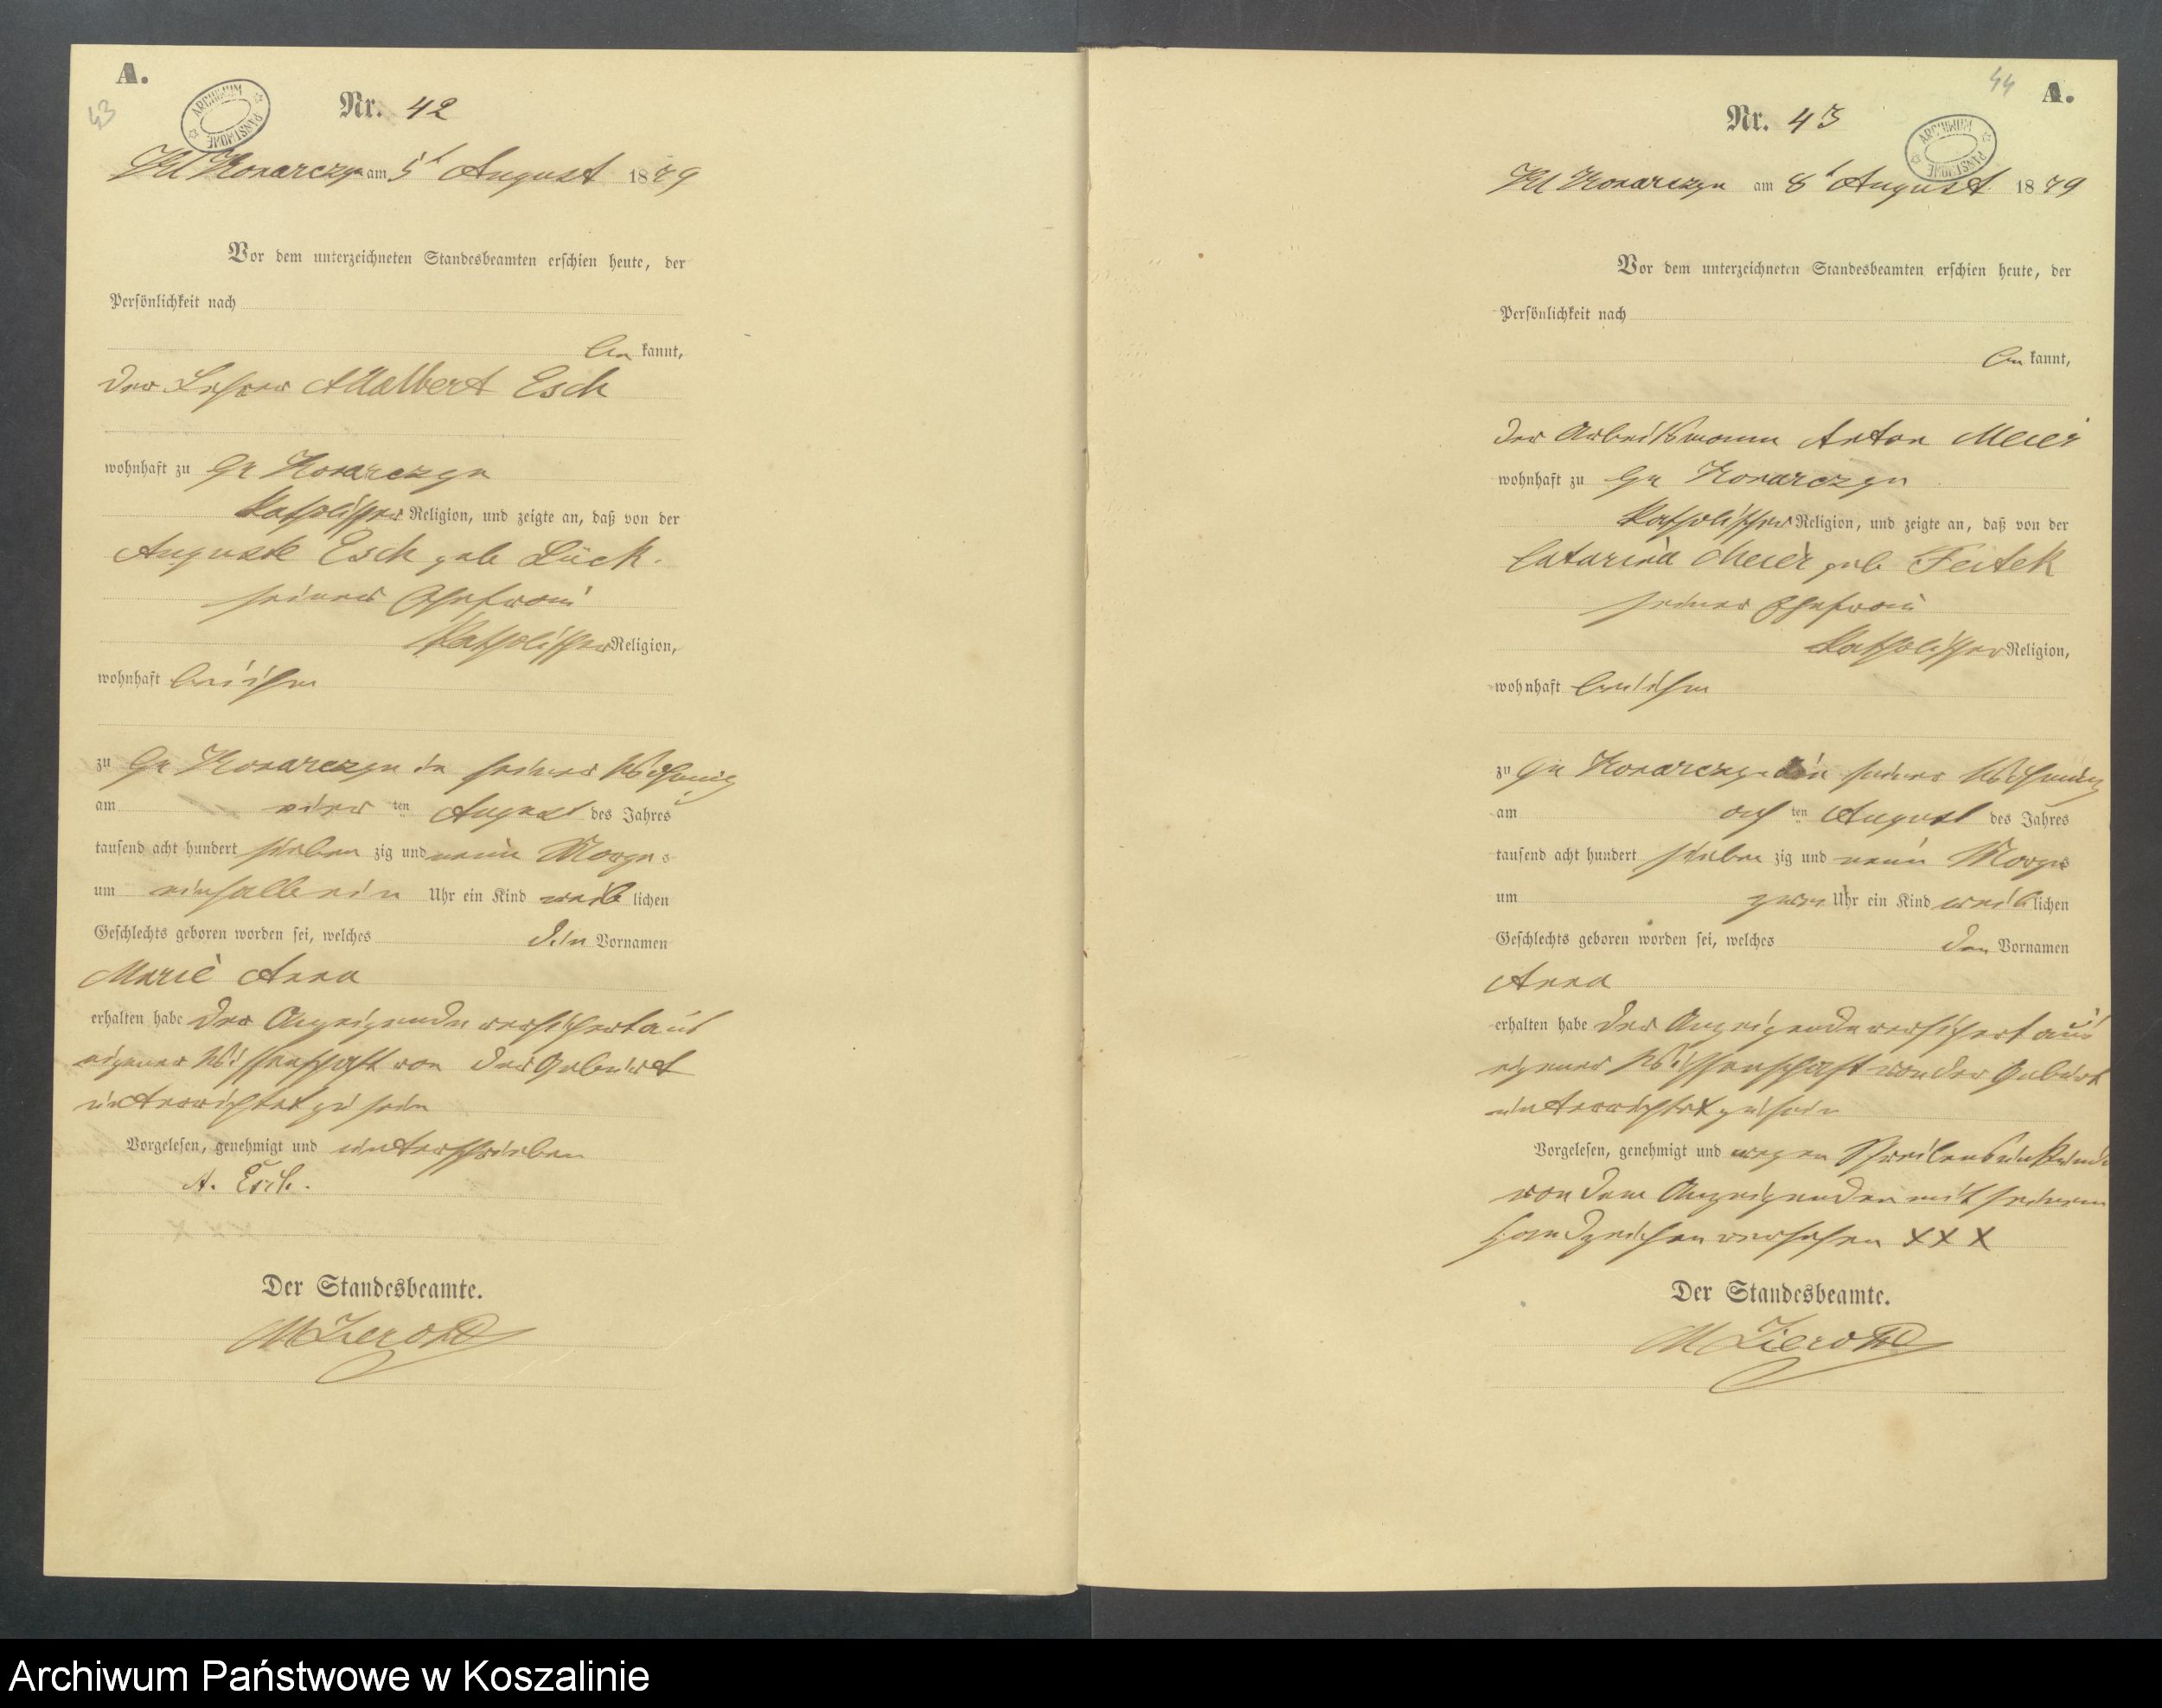 A.
43
ARCHIWUM PAŃSTWOWE
Nr. 42
Kl Konarczyn am 5t August 1879
Vor dem unterzeichneten Standesbeamten erschien heute, der
Persönlichkeit nach
be kannt,
der Lehrer Adalbert Esch
wohnhaft zu Gr Konarczyn
katholischer Religion, und zeigte an, daß von der
Auguste Esch geb Lück.
seiner Ehefrau
katholischer Religion,
wohnhaft bei ihm
zu Gr Konarczyn in seiner Wohnung
am vier ten August des Jahres
tausend acht hundert sieben zig und neun Morgens
um einhalb ein Uhr ein Kind weib lichen
Geschlechts geboren worden sei, welches die Vornamen
Marie Anna
erhalten habe der Anzeigende versichert aus
eigener Wissenschaft von der Geburt
unterrichtet zu sein
Vorgelesen, genehmigt und unterschrieben
A. Esch.
Der Standesbeamte.
44
A.
ARCHIWUM PAŃSTWOWE
Nr. 43
Kl Konarczyn am 8t August 1879
Vor dem unterzeichneten Standesbeamten erschien heute, der
Persönlichkeit nach
be kannt,
der Arbeitsmann Anton Meier
wohnhaft zu Gr Konarczyn
katholischer Religion, und zeigte an, daß von der
Catarina Meier geb Feitek
seiner Ehefrau
katholischer Religion,
wohnhaft bei ihm
zu Gr Konarczyn in seiner Wohnung
am ach ten August des Jahres
tausend acht hundert sieben zig und neun Morgens
um zwei Uhr ein Kind weib lichen
Geschlechts geboren worden sei, welches den Vornamen
Anna
erhalten habe der Anzeigende versichert aus
eigener Wissenschaft von der Geburt
unterrichtet zu sein
Vorgelesen, genehmigt und wegen Schreibensunkunde
von dem Anzeigenden mit seinem
Handzeichen versehen XXX
Der Standesbeamte.
Archiwum Państwowe w Koszalinie